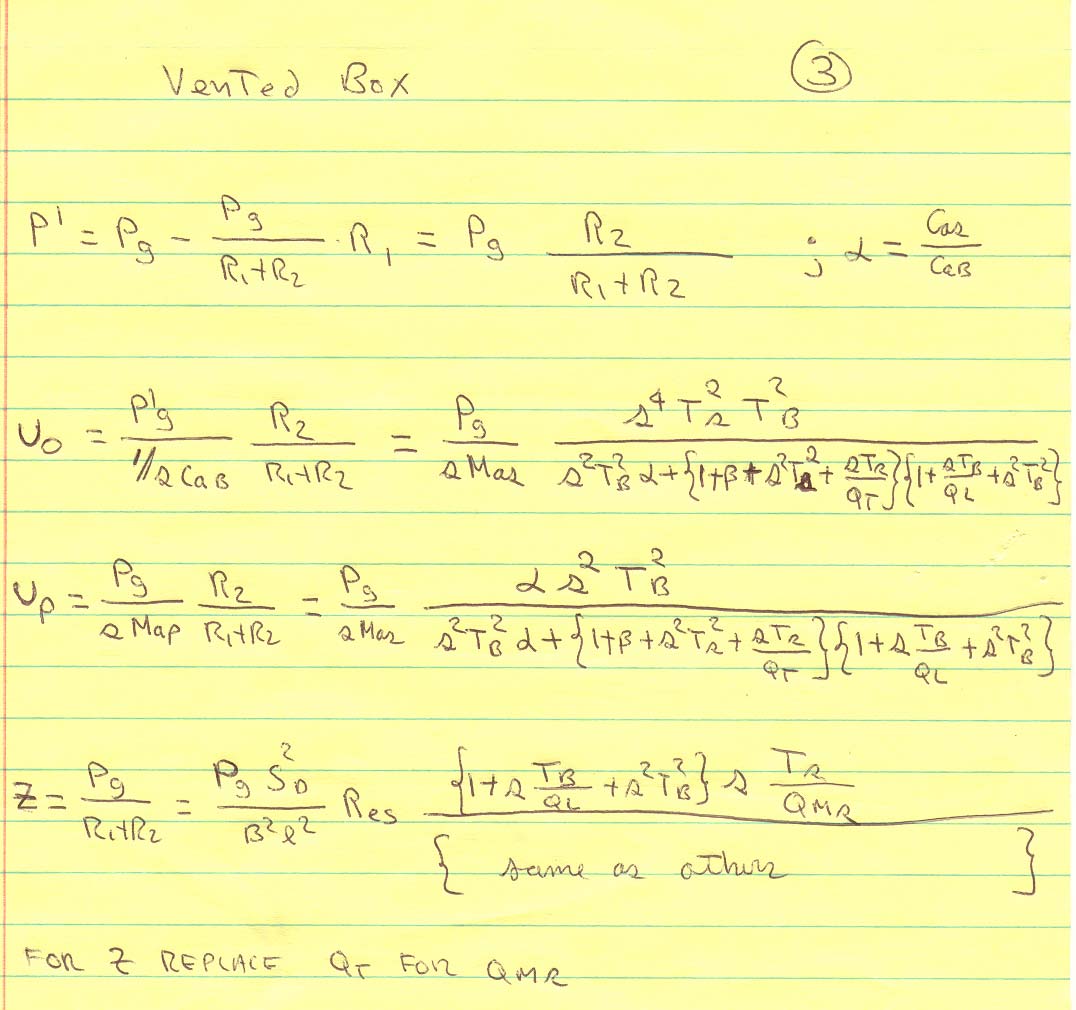 Vented Box ③
P' = Pg - Pg/(R1+R2) · R1 = Pg R2/(R1+R2) ; α = Cas/CaB
U0 = P'g/(1/sCaB) R2/(R1+R2) = Pg/(sMas) s⁴Ts²TB²/(s²TB²α+{1+β+s²Ts²+sTs/QT}{1+sTB/QL+s²TB²})
Up = Pg/(sMap) R2/(R1+R2) = Pg/(sMas) αs²TB²/(s²TB²α+{1+β+s²Ts²+sTs/QT}{1+sTB/QL+s²TB²})
Z = Pg/(R1+R2) = PgSD²/(B²l²) Res {1+sTB/QL+s²TB²}s Ts/QMs/{same as other}
FOR Z REPLACE QT FOR QMs